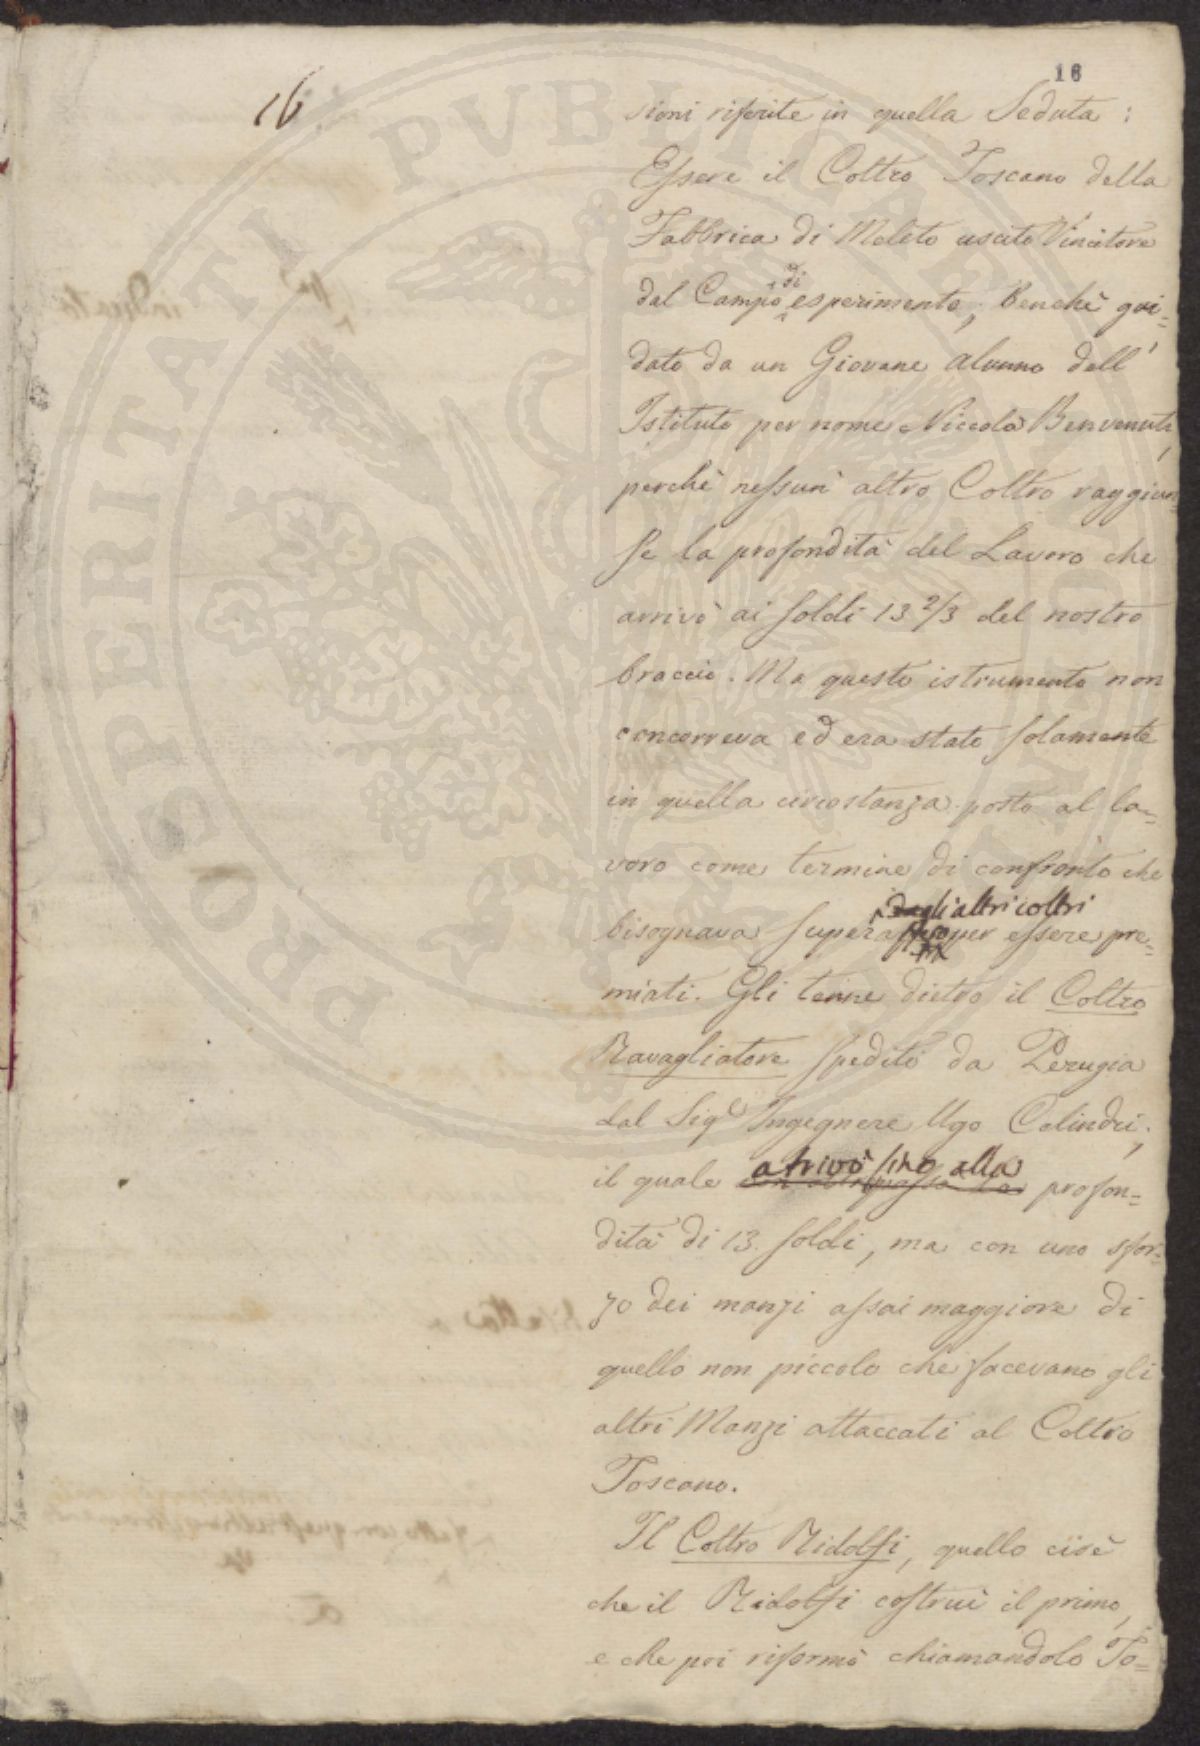 16
16
sioni riferite in quella Seduta:
Essere il Coltro Toscano della
Fabbrica di Meleto uscito Vincitore
dal Campo di esperimento, Benchè gui=
dato da un Giovane alunno dell'
Istituto per nome Niccolò Benvenuti,
perchè nessun' altro Coltro raggiun
se la profondità del Lavoro che
arrivò ai soldi 13 2/3 del nostro
braccio. Ma questo istrumento non
concorreva ed era stato solamente
in quella circostanza posto al la=
voro come termine di confronto che
dagli altri coltri
bisognava superasse per essere pre=
miati. Gli tenne dietro il Coltro
Ravagliatore spedito da Perugia
dal Sigr Ingegnere Ugo Calindri,
arrivò sino alla
il quale profon=
dità di 13. soldi, ma con uno sfor=
zo dei manzi assai maggiore di
quello non piccolo che facevano gli
altri Manzi attaccati al Coltro
Toscano.
Il Coltro Ridolfi, quello cioè
che il Ridolfi costruì il primo,
e che poi riformò chiamandolo To=
PROSPERITATI PUBLICAE